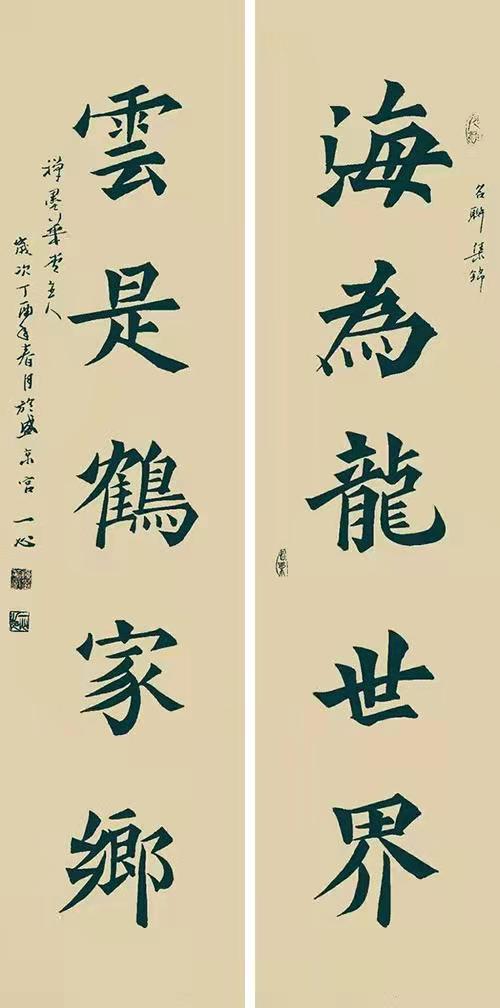 名聯集錦
海為龍世界
雲是鶴家鄉
禪墨華堂主人
歲次丁酉年春月於盛京宮一心